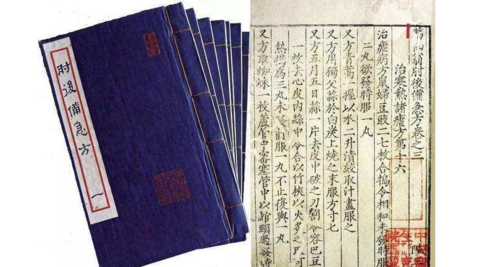 肘後備急方
一
葛仙翁肘後備急方卷之三
治寒熱諸瘧方第十六
治瘧病方鼠婦豆豉二七枚合搗令相和未發時服
二丸欲發時服一丸
又方青蒿一握以水二升漬絞取汁盡服之
又方用獨父蒜於白炭上燒之末服方寸匕
又方五月五日蒜一片去皮中破之刀割令容巴豆
一枚去心皮內蒜中令合以竹挾以火炙之取可
熱搗為三丸未發前服一丸不止復與一丸
又方取蜘蛛一枚蘆管中密塞管中以綰頸過發時